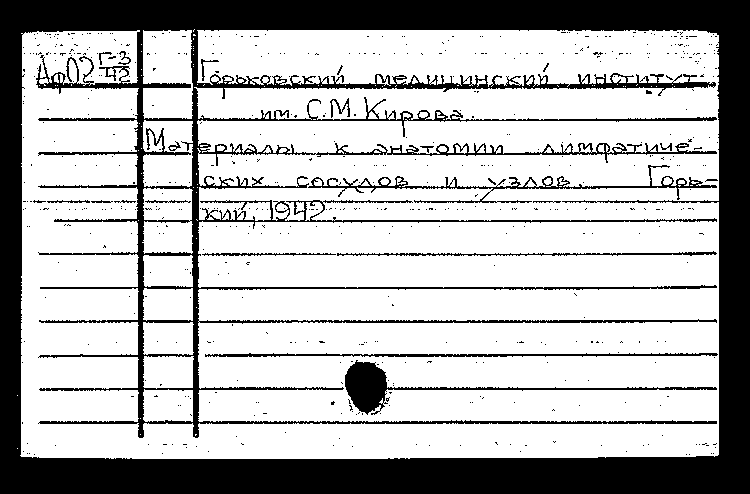 Аф02 Г-3/42 Горьковский медицинский институт
им. С.М. Кирова.
Материалы к анатомии лимфатиче-
ских сосудов и узлов. Горь-
кий, 1942.